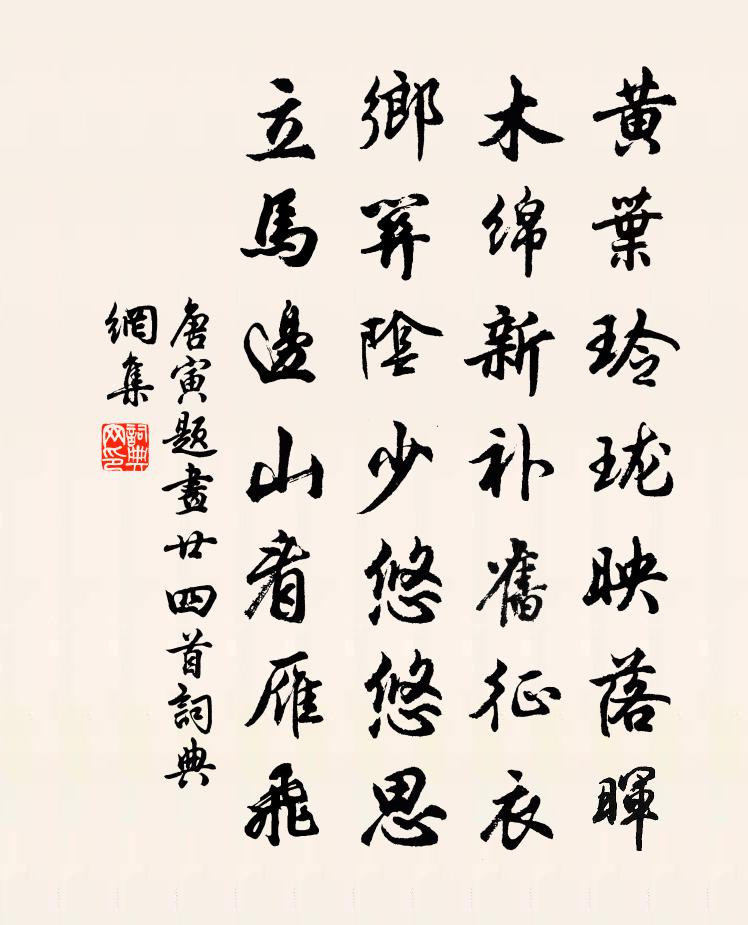 黃葉玲珑映落暉
木绵新补舊征衣
鄉關陰少悠悠思
立馬邊山看雁飛
唐寅題畫廿四首詞典
網集
詞典
网印